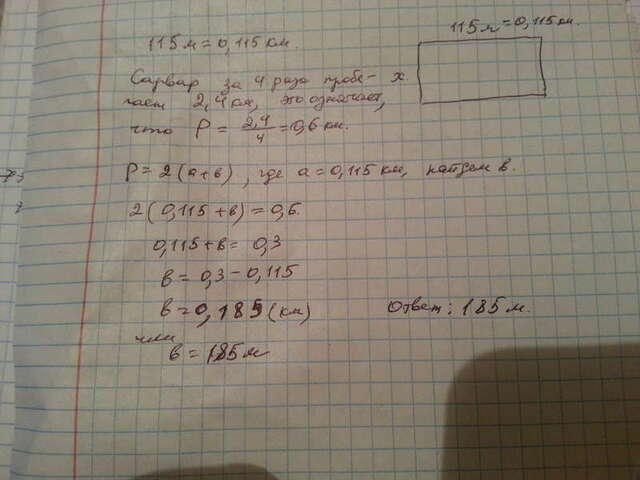 115 м = 0,115 км.
115 м = 0,115 км.
Сарвар за 4 раза пробе-
х.
гает 2,4 км, это означает,
что P = 2,4/4 = 0,6 км.
P = 2(а+в), где а = 0,115 км, найдем в.
2(0,115+в) = 0,6.
0,115+в = 0,3
в = 0,3 - 0,115
в = 0,185 (км)
Ответ: 185 м.
или
в = 185 м